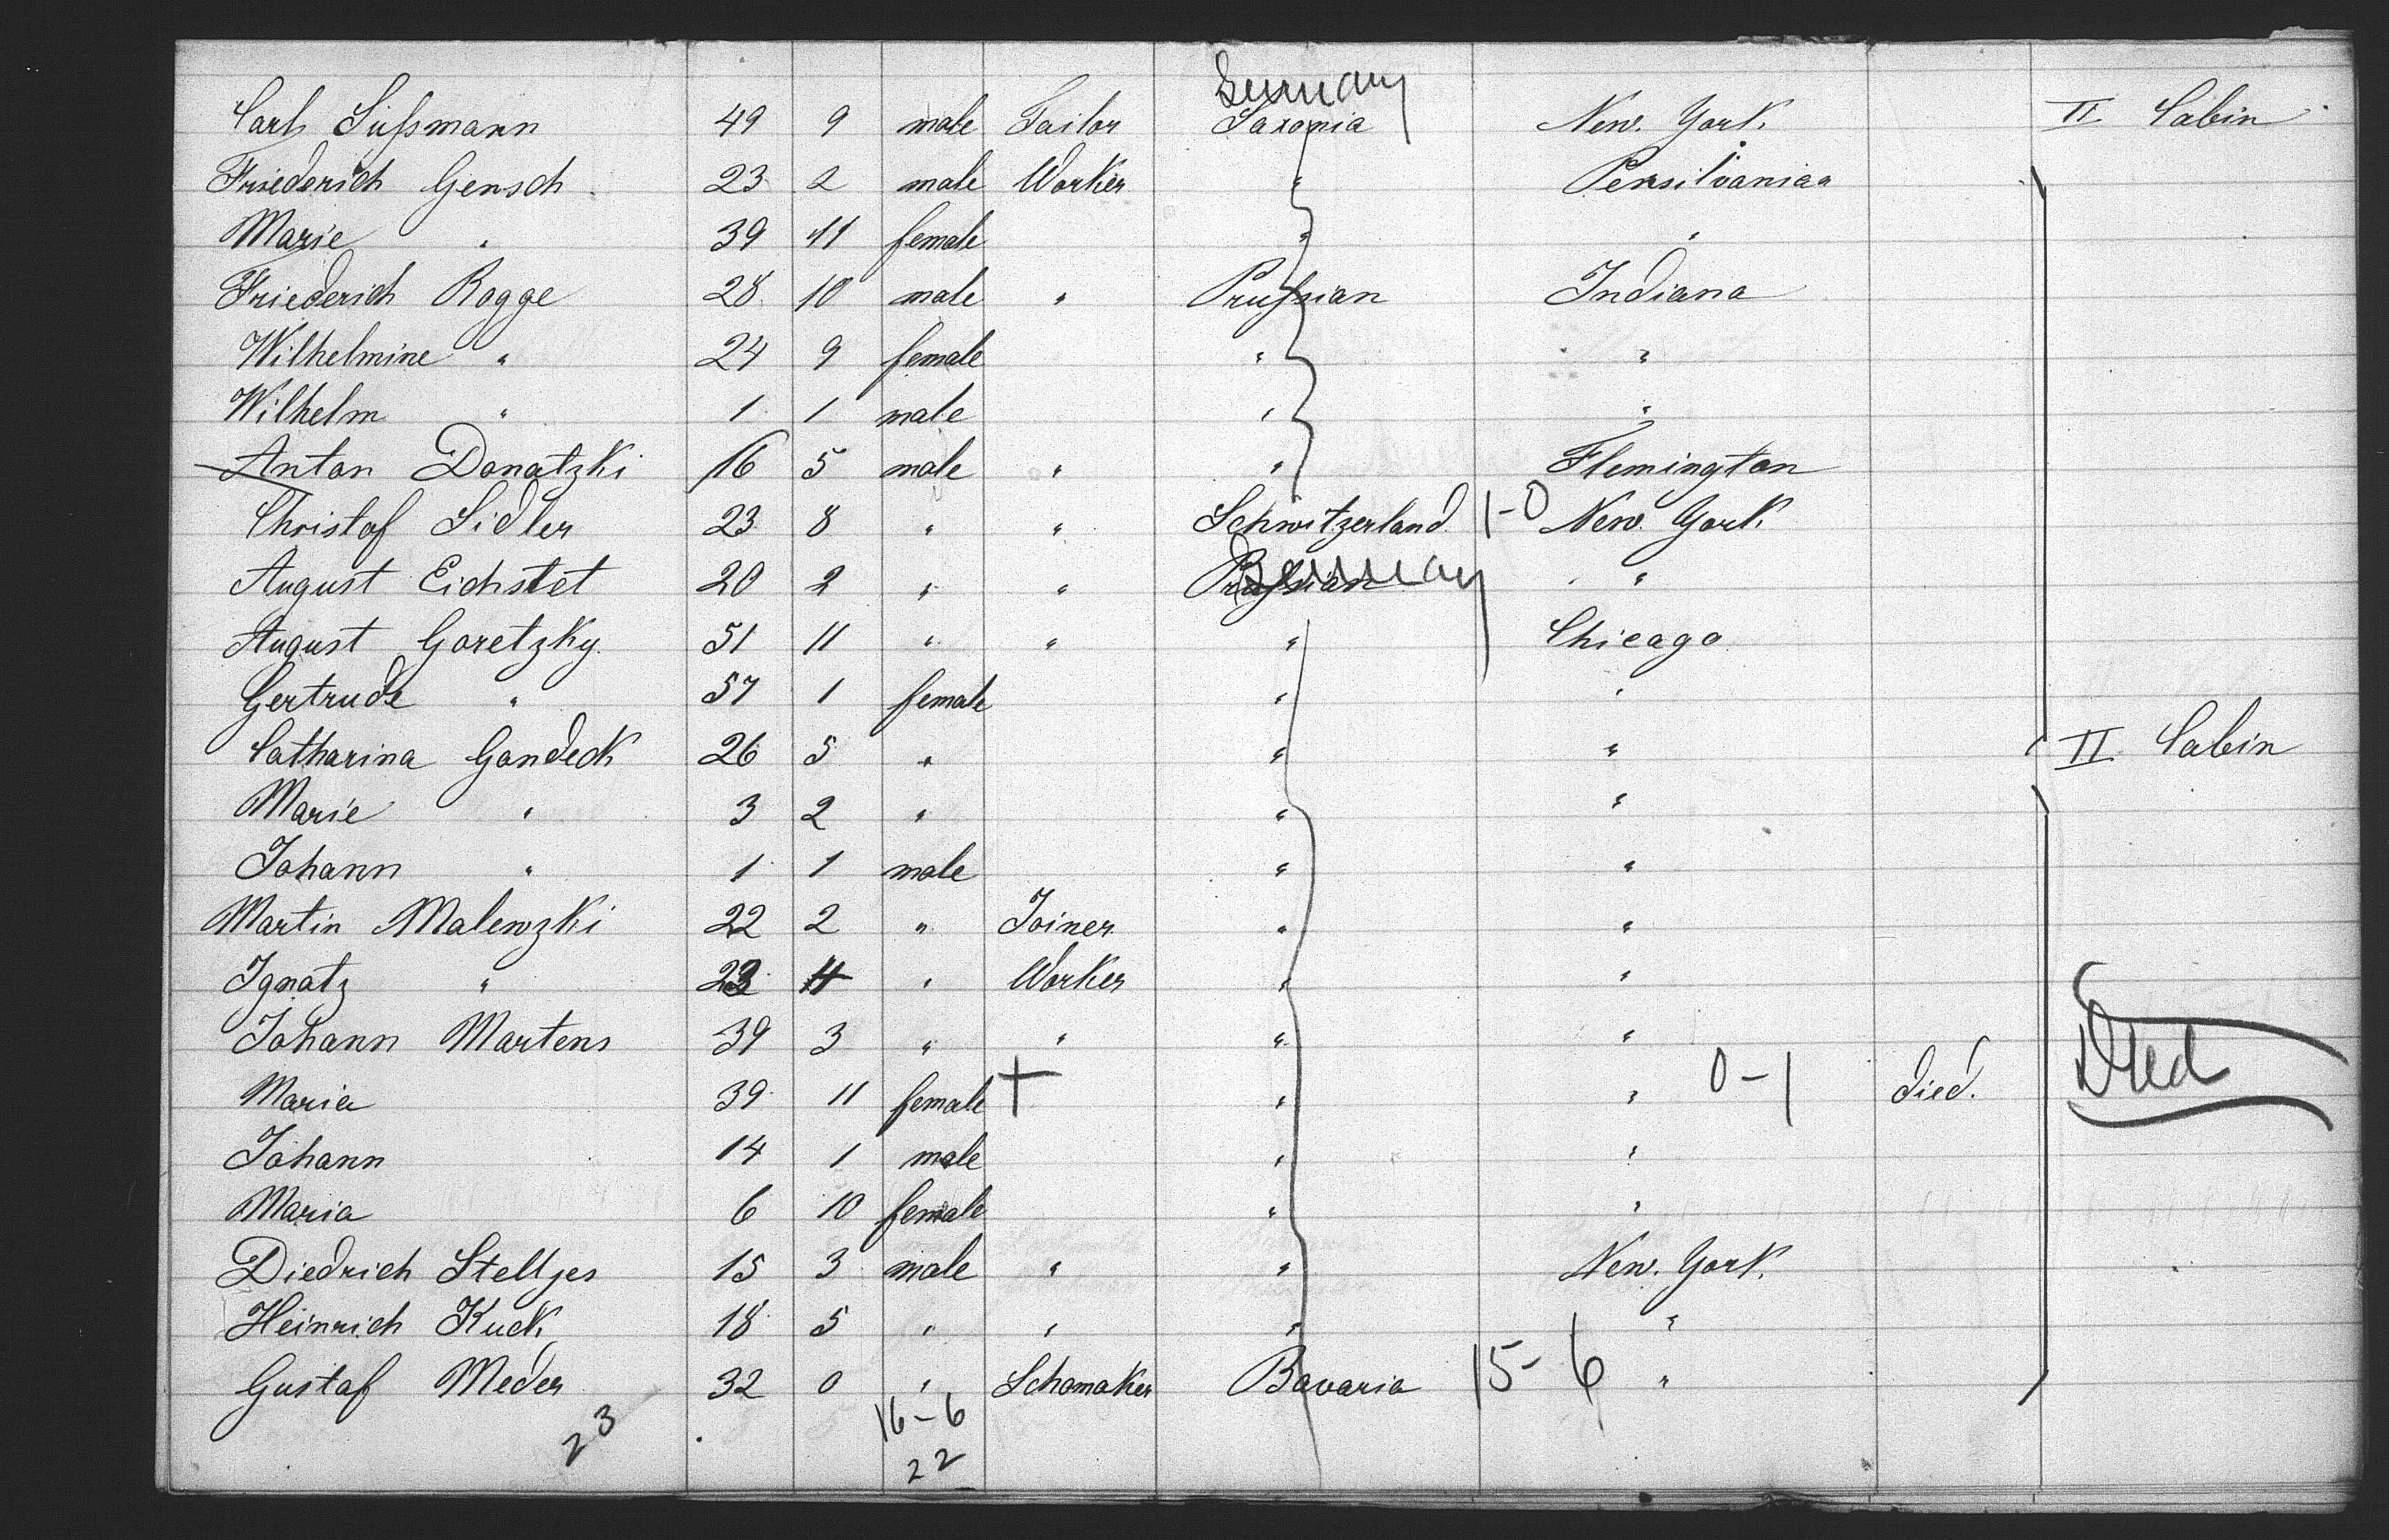 Germany
Carl Süßmann 49 9 male Tailor Saxonia New. York. II. Cabin
Friederich Gensch 23 2 male Worker " Pensilvaniaa
Marie " 39 11 female " "
Friederich Rogge 28 10 male " Prußian Indiana
Wilhelmine " 24 9 female " "
Wilhelm " 1 1 male " "
Anton Donatzki 16 5 male " " Flemington
Christof Sidler 23 8 " " Schwitzerland 1-0 New. York.
August Eichstet 20 2 " " Prußian Germany "
August Goretzky. 51 11 " " " Chicago
Gertrude " 57 1 female " "
Catharina Gandeck 26 5 " " " II. Cabin
Marie " 3 2 " " "
Johann " 1 1 male " "
Martin Malewzki 22 2 " Joiner " "
Ignatz " 23 4 " Worker " "
Johann Martens 39 3 " " " "
Maria 39 11 female + " " 0-1 died. Died
Johann 14 1 male " "
Maria 6 10 female " "
Diedrich Steltjes 15 3 male " " New. York.
Heinrich Kuck 18 5 " " " "
Gustaf Meder 32 0 " Schomaker Bavaria 15-6 "
23 16-6
22